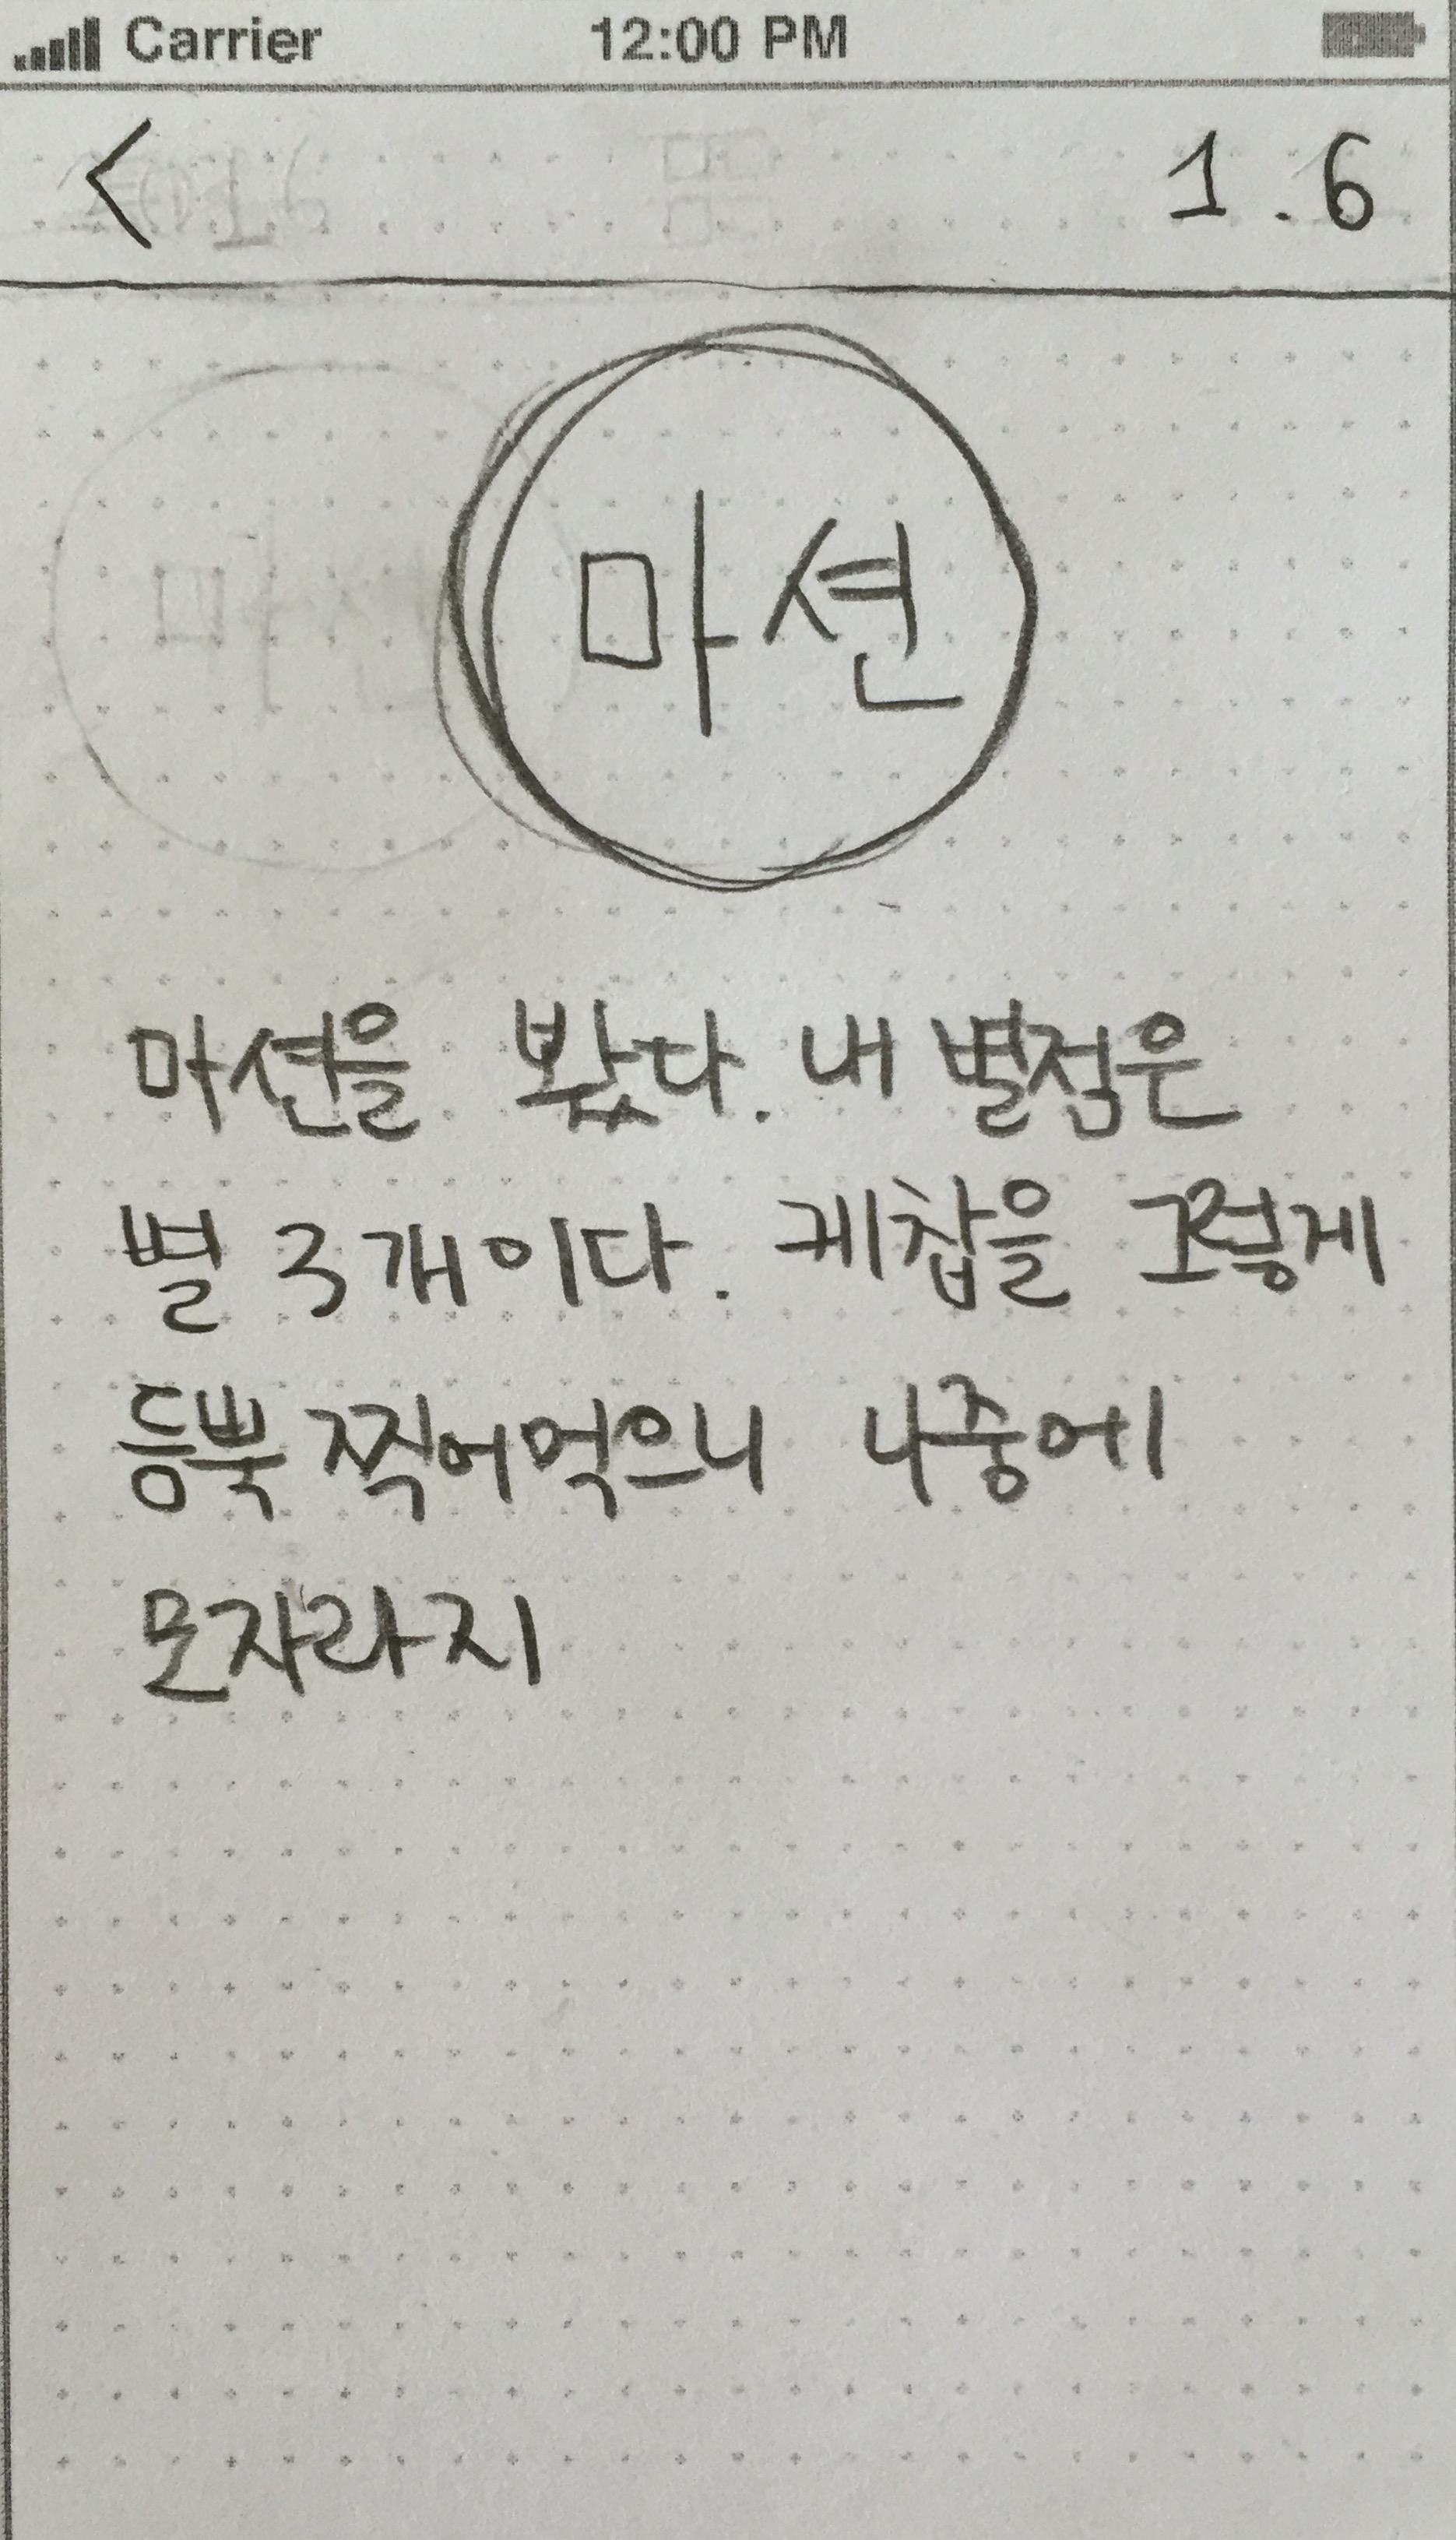 Carrier 12:00 PM
< 1.6
마션
마션을 봤다. 내 별점은
별 3개이다. 케찹을 그렇게
듬뿍 찍어먹으니 나중에
모자라지